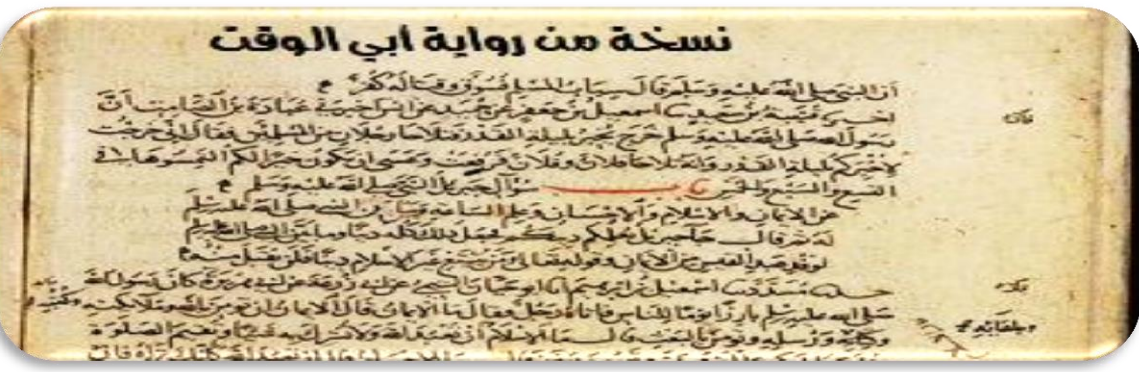 نسخة من رواية أبي الوقت
أن النبي صلى الله عليه وسلم قال سباب المسلم فسوق وقتاله كفر
قتيبة بن سعيد اسمعيل بن جعفر عن حميد عن انس اخبرني عبادة بن الصامت أن
رسول الله صلى الله عليه وسلم خرج يخبر بليلة القدر فتلاحا رجلان من المسلمين فقال اني خرجت
لاخبركم بليلة القدر وانه تلاحا فلان وفلان فرفعت وعسى ان يكون خيرا لكم التمسوها في
التسع والسبع والخمس باب سؤال جبريل النبي صلى الله عليه وسلم
عن الايمان والاسلام والاحسان وعلم الساعة وبيان النبي صلى الله عليه وسلم
له ثم قال جا جبريل يعلمكم دينكم فجعل ذلك كله دينا وما بين النبي صلى الله عليه وسلم
لوفد عبد القيس من الايمان وقوله تعالى ومن يبتغ غير الاسلام دينا فلن يقبل منه
حدثنا مسدد اسمعيل بن ابرهيم ابو حيان التيمي عن ابي زرعة عن ابي هريرة كان رسول الله
صلى الله عليه وسلم بارزا يوما للناس فاتاه رجل فقال ما الايمان قال الايمان ان تومن بالله وملائكته وكتبه
وبلقائه
ورسله وتومن بالبعث قال ما الاسلام ان تعبد الله ولا تشرك به شيئا وتقيم الصلوة